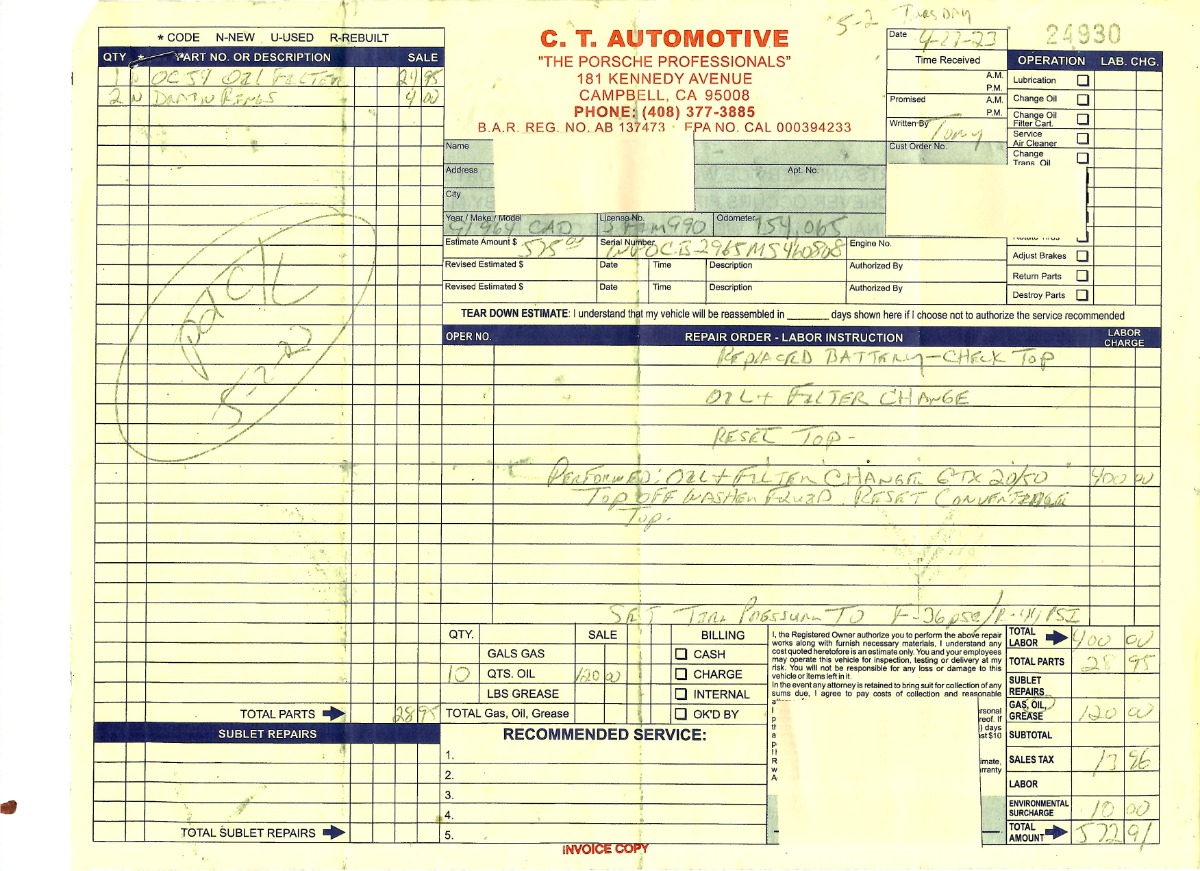 5-2 TUESDAY
* CODE N-NEW U-USED R-REBUILT
QTY * PART NO. OR DESCRIPTION SALE
1 N OC 54 OIL FILTER 24 95
2 N DRAIN RINGS 4 00
pd
5-2-
TOTAL PARTS 28 95
SUBLET REPAIRS
TOTAL SUBLET REPAIRS
C. T. AUTOMOTIVE
"THE PORSCHE PROFESSIONALS"
181 KENNEDY AVENUE
CAMPBELL, CA 95008
PHONE: (408) 377-3885
B.A.R. REG. NO. AB 137473 · EPA NO. CAL 000394233
Date 4-27-23
24930
Time Received
A.M.
P.M.
Promised A.M.
P.M.
Written By Tony
Cust Order No.
OPERATION LAB. CHG.
Lubrication
Change Oil
Change Oil
Filter Cart.
Service
Air Cleaner
Change
Trans. Oil
Adjust Brakes
Return Parts
Destroy Parts
Name
Address Apt. No.
City
Year / Make / Model License No. Odometer
91 964 CAB 154,065
Estimate Amount $ 575 00 Serial Number Engine No.
Revised Estimated $ Date Time Description Authorized By
Revised Estimated $ Date Time Description Authorized By
TEAR DOWN ESTIMATE: I understand that my vehicle will be reassembled in ________ days shown here if I choose not to authorize the service recommended
OPER NO. REPAIR ORDER - LABOR INSTRUCTION LABOR CHARGE
REPLACED BATTERY - CHECK TOP
OIL + FILTER CHANGE
RESET TOP -
PERFORMED: OIL + FILTER CHANGE GTX 20/50 400 00
TOP OFF WASHER FLUID. RESET CONVERTIBLE
TOP.
SET TIRE PRESSURE TO F-36psi/R-44 PSI
QTY. SALE BILLING
GALS GAS CASH
10 QTS. OIL 120 00 CHARGE
LBS GREASE INTERNAL
TOTAL Gas, Oil, Grease OK'D BY
RECOMMENDED SERVICE:
1.
2.
3.
4.
5.
I, the Registered Owner authorize you to perform the above repair
works along with furnish necessary materials, I understand any
cost quoted heretofore is an estimate only. You and your employees
may operate this vehicle for inspection, testing or delivery at my
risk. You will not be responsible for any loss or damage to this
vehicle or items left in it.
In the event any attorney is retained to bring suit for collection of any
sums due, I agree to pay costs of collection and reasonable
TOTAL LABOR 400 00
TOTAL PARTS 28 95
SUBLET REPAIRS
GAS, OIL, GREASE 120 00
SUBTOTAL
SALES TAX 13 96
LABOR
ENVIRONMENTAL SURCHARGE 10 00
TOTAL AMOUNT 572 91
INVOICE COPY